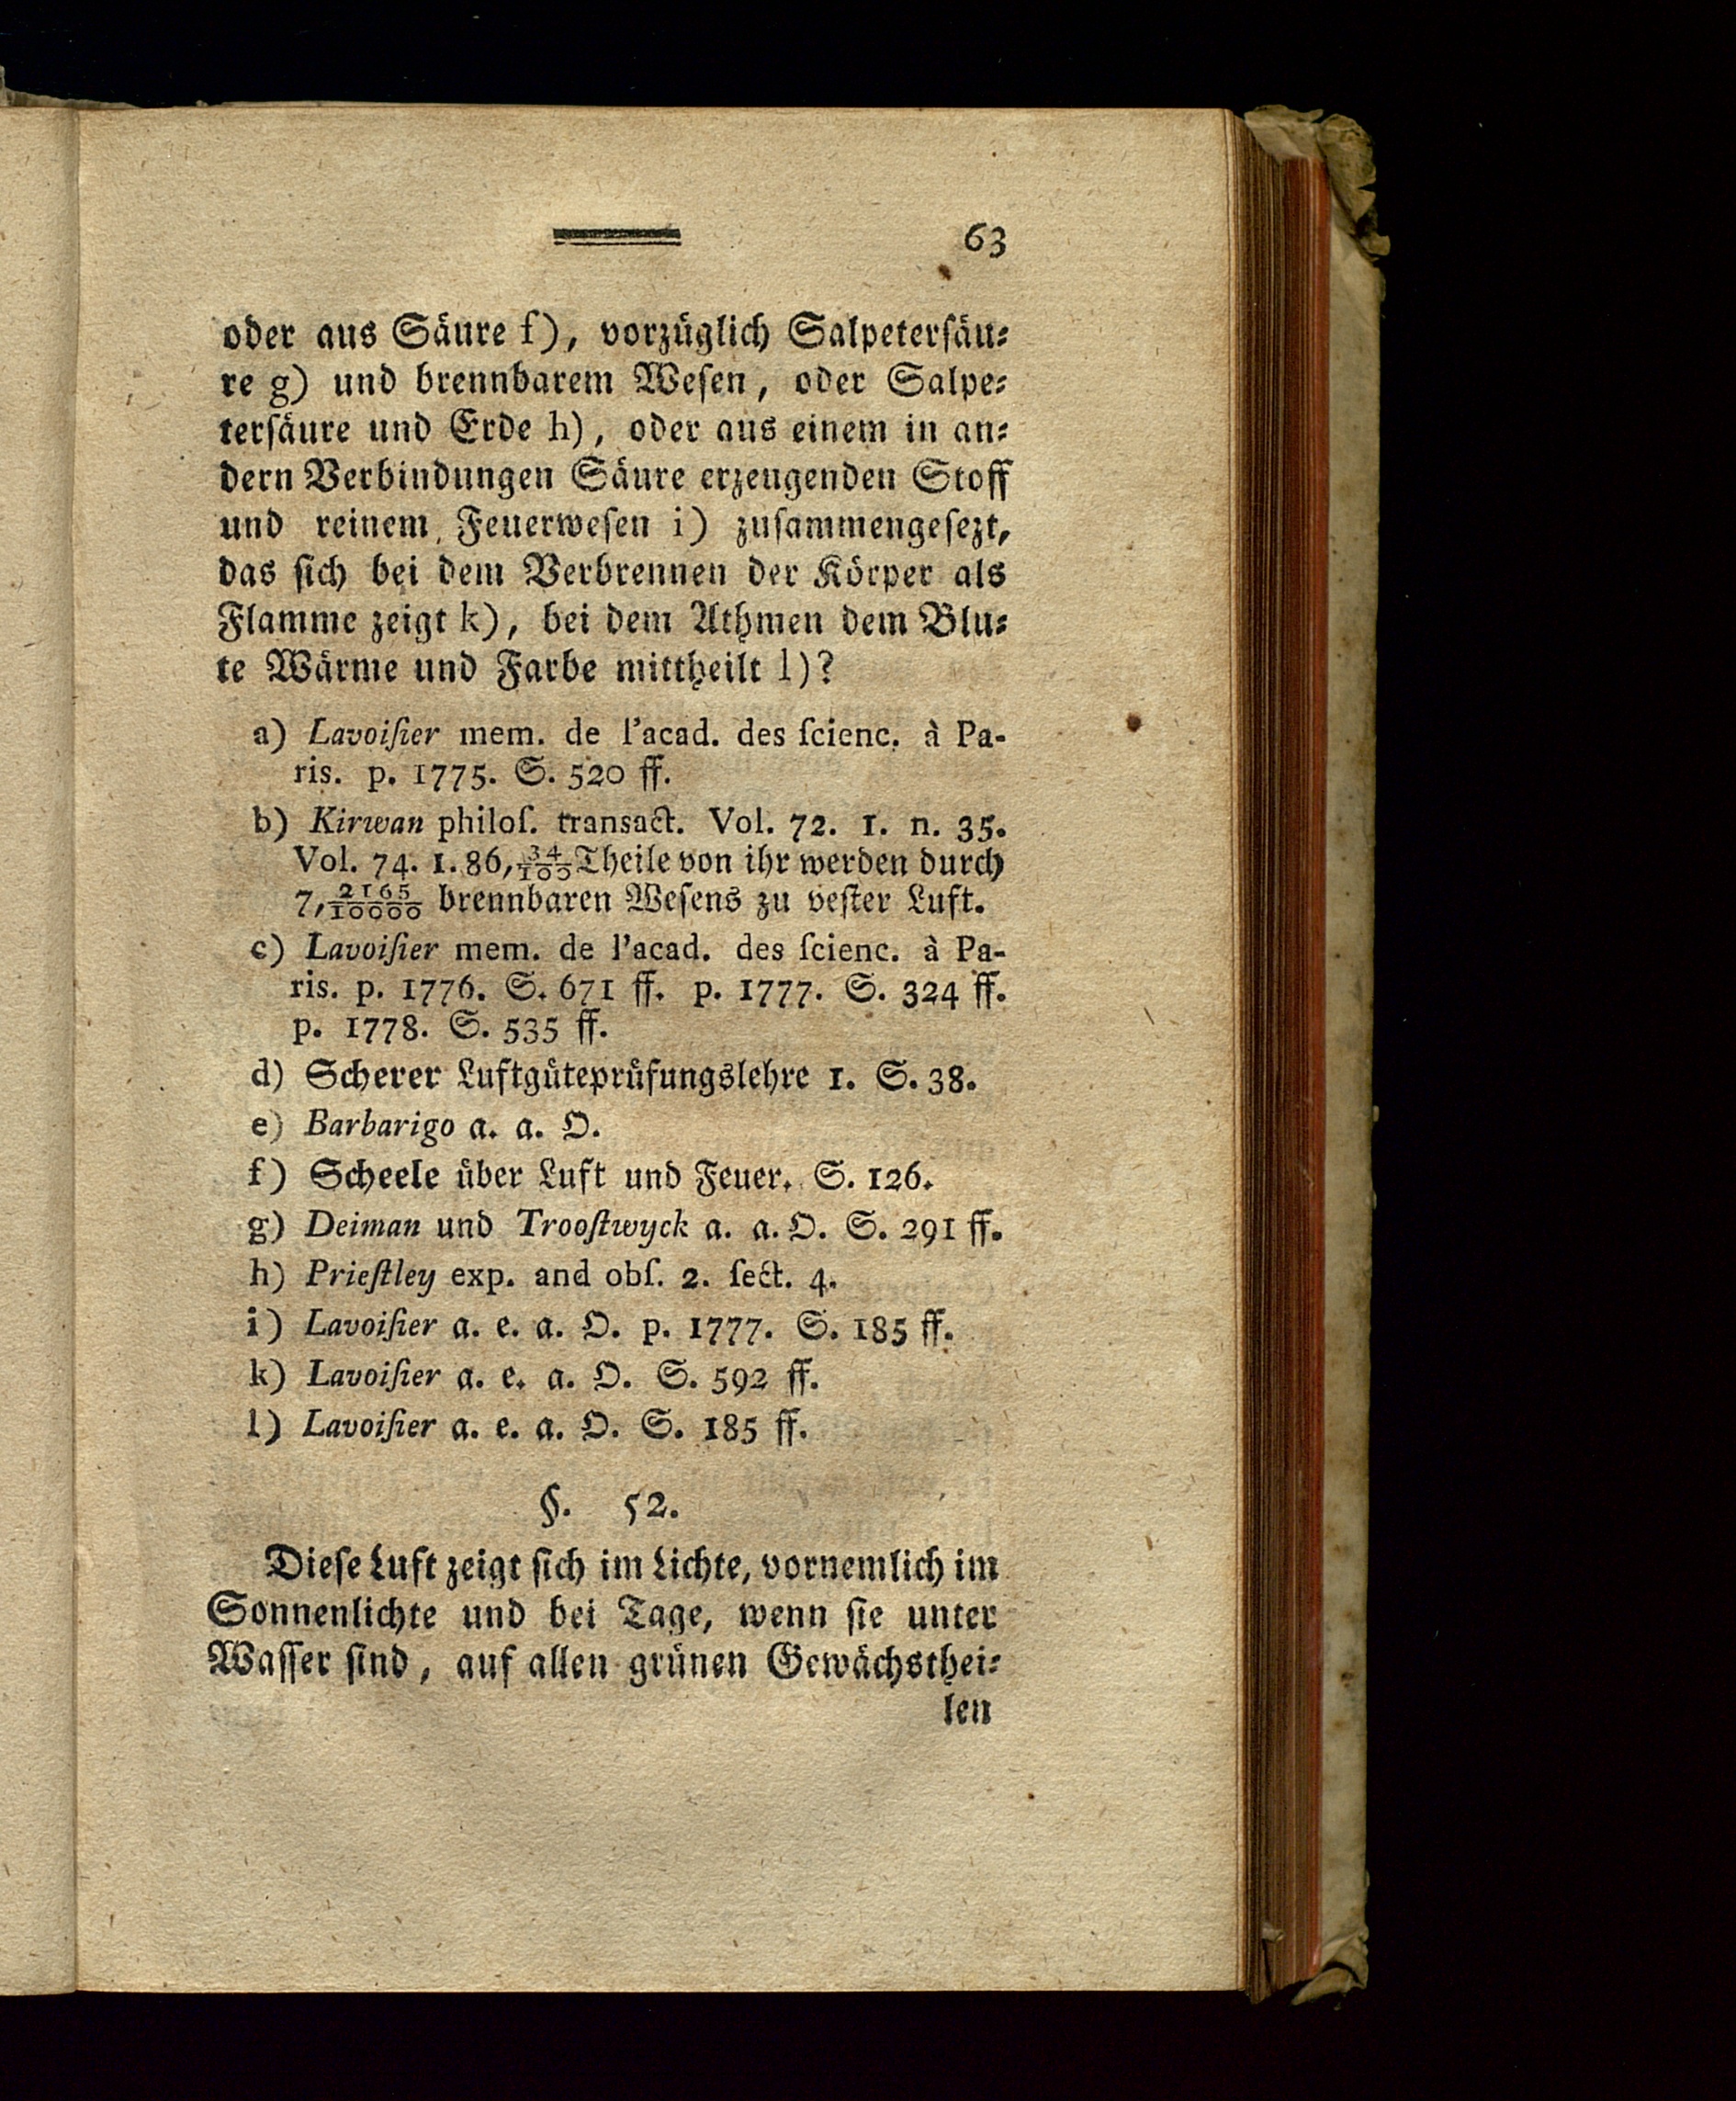 63
oder aus Säure f), vorzüglich Salpetersäu-
re g) und brennbarem Wesen, oder Salpe-
tersäure und Erde h), oder aus einem in an-
dern Verbindungen Säure erzeugenden Stoff
und reinem Feuerwesen i) zusammengesezt,
das sich bei dem Verbrennen der Körper als
Flamme zeigt k), bei dem Athmen dem Blu-
te Wärme und Farbe mittheilt l)?
a) Lavoiſier mem. de l'acad. des ſcienc. à Pa-
ris. p. 1775. S. 520 ff.
b) Kirwan philoſ. transact. Vol. 72. 1. n. 35.
Vol. 74. 1. 86, 34/100 Theile von ihr werden durch
7, 2165/10000 brennbaren Wesens zu vester Luft.
c) Lavoiſier mem. de l'acad. des ſcienc. à Pa-
ris. p. 1776. S. 671 ff. p. 1777. S. 324 ff.
p. 1778. S. 535 ff.
d) Scherer Luftgüteprüfungslehre 1. S. 38.
e) Barbarigo a. a. O.
f) Scheele über Luft und Feuer. S. 126.
g) Deiman und Trooſtwyck a. a. O. S. 291 ff.
h) Prieſtley exp. and obſ. 2. ſect. 4.
i) Lavoiſier a. e. a. O. p. 1777. S. 185 ff.
k) Lavoiſier a. e. a. O. S. 592 ff.
l) Lavoiſier a. e. a. O. S. 185 ff.
§. 52.
Diese Luft zeigt sich im Lichte, vornemlich im
Sonnenlichte und bei Tage, wenn sie unter
Wasser sind, auf allen grünen Gewächsthei-
len